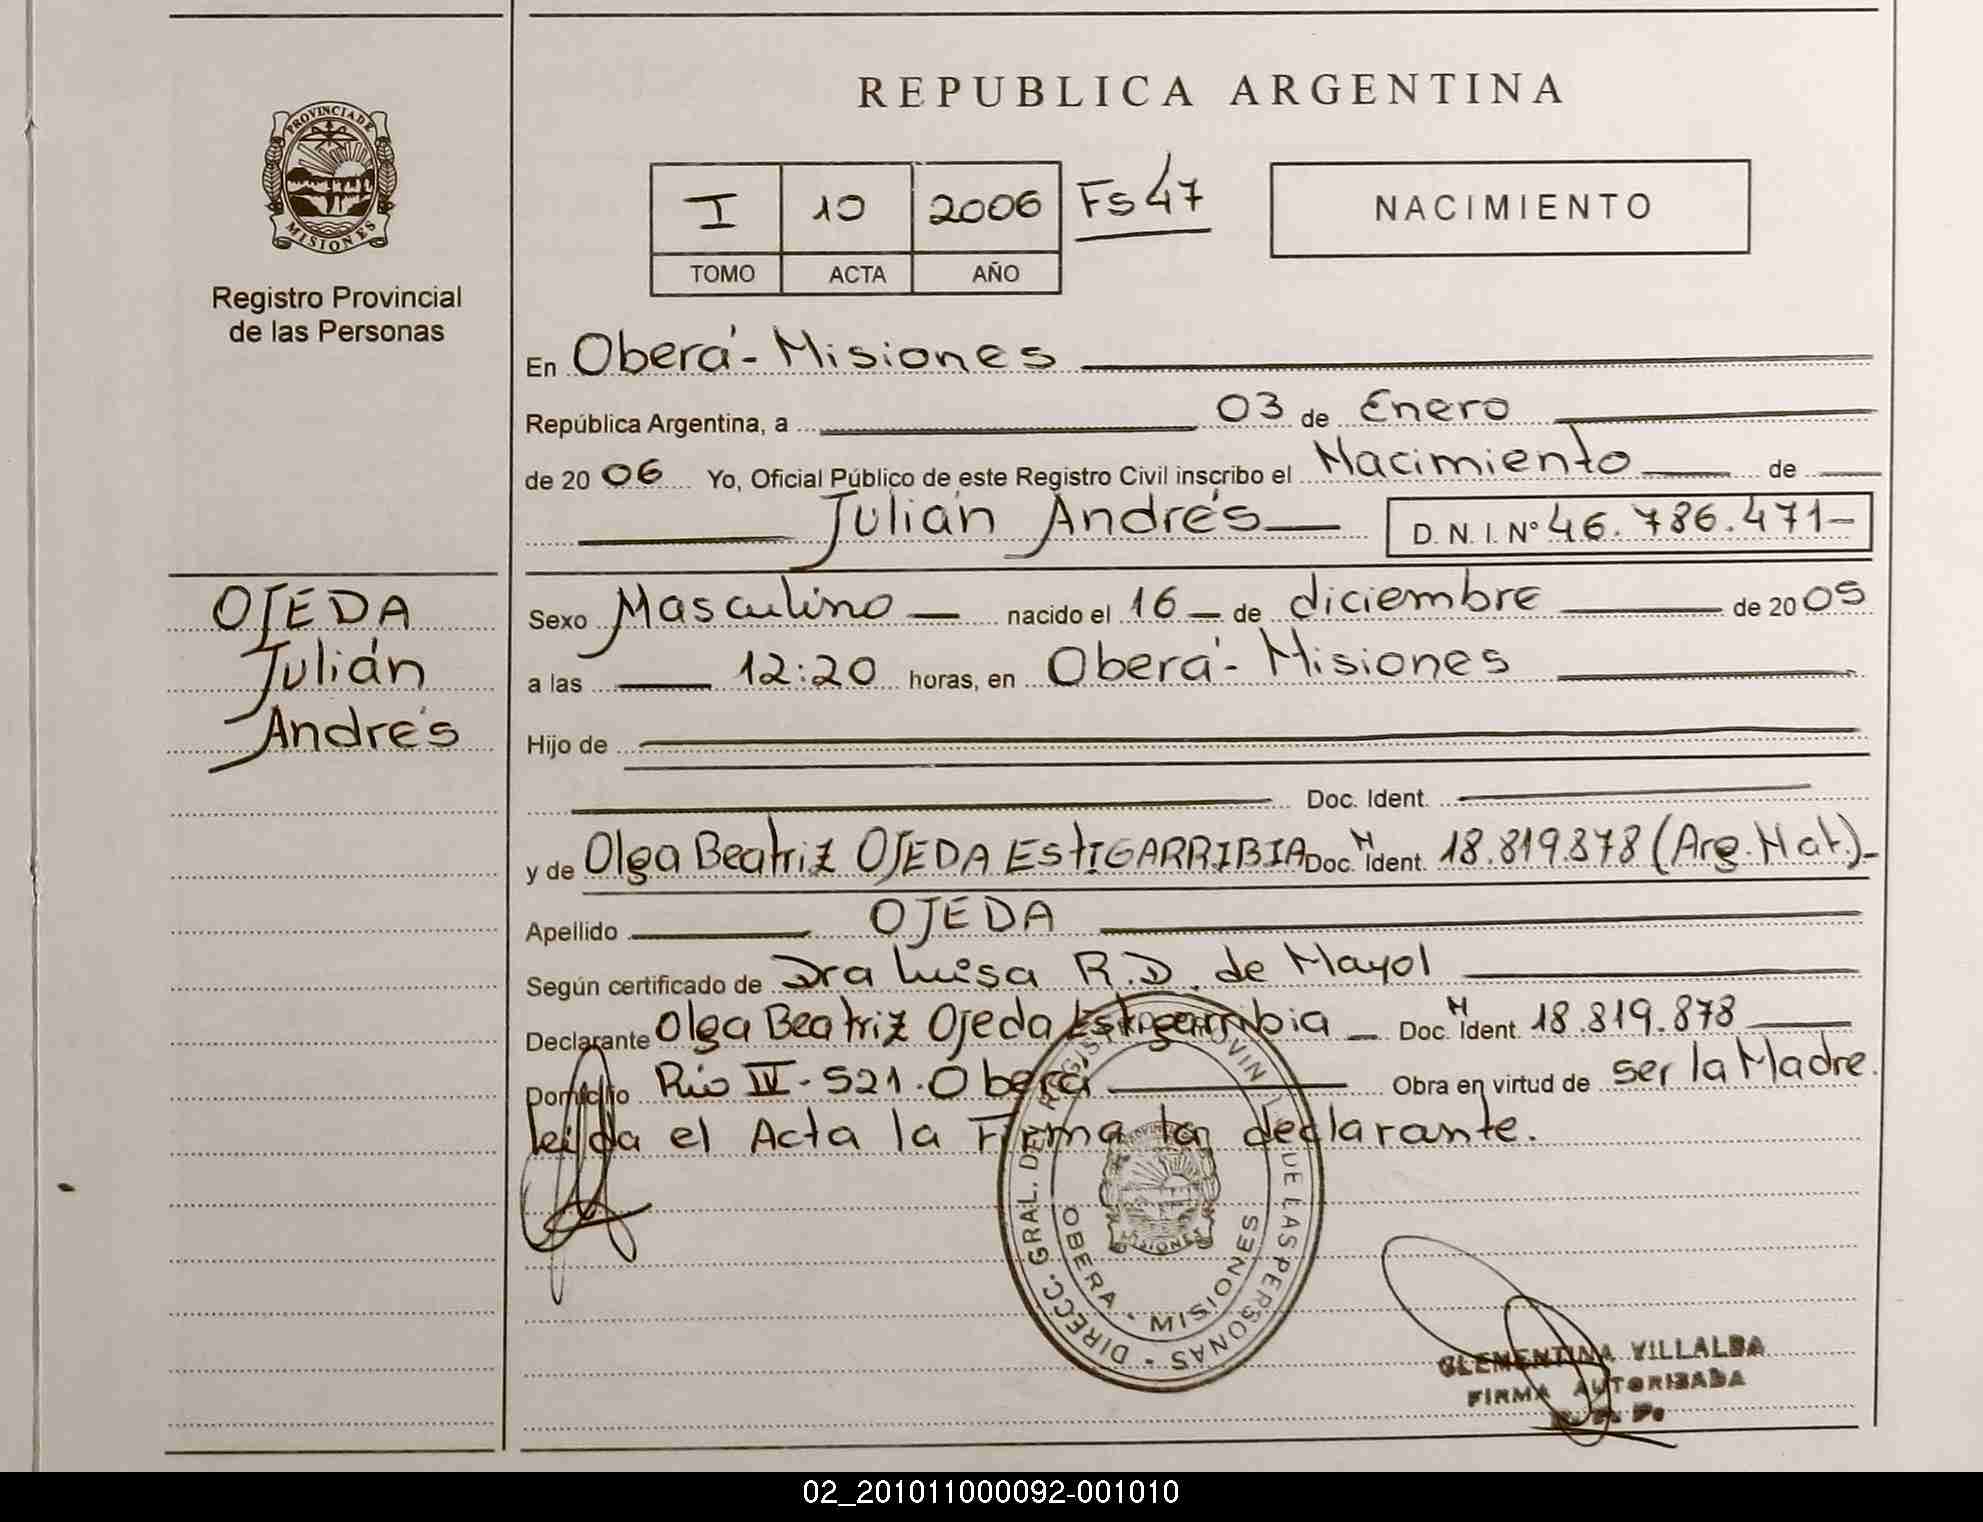 REPUBLICA ARGENTINA
PROVINCIA DE MISIONES
Registro Provincial
de las Personas
I 10 2006 Fs 47
TOMO ACTA AÑO
NACIMIENTO
En Oberá - Misiones
República Argentina, a 03 de Enero
de 20 06 Yo, Oficial Público de este Registro Civil inscribo el Nacimiento de
Julián Andrés D. N. I. Nº 46.786.471-
OJEDA
Julián
Andrés
Sexo Masculino nacido el 16 de diciembre de 20 05
a las 12:20 horas, en Oberá - Misiones
Hijo de
Doc. Ident.
y de Olga Beatriz OJEDA ESTIGARRIBIA Doc. N Ident. 18.819.878 (Arg. Nat.)-
Apellido OJEDA
Según certificado de Dra Luisa R.D. de Mayol
Declarante Olga Beatriz Ojeda Estigarribia Doc. N Ident. 18.819.878
Domicilio Rio IV - 521. Oberá Obra en virtud de ser la Madre.
leida el Acta la Firma la declarante.
DIRECC. GRAL. DEL REGISTRO PROVINCIAL DE LAS PERSONAS
OBERA - MISIONES
CLEMENTINA VILLALBA
FIRMA AUTORIZADA
R. P. P.
02_201011000092-001010